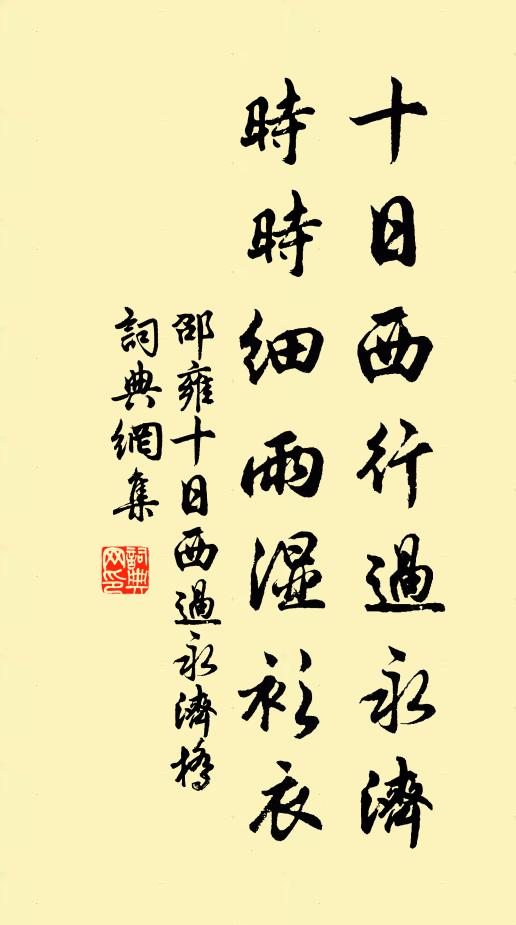 十日西行過永濟
時時細雨湿衫衣
邵雍十日西過永濟橋
詞典網集
詞典網印